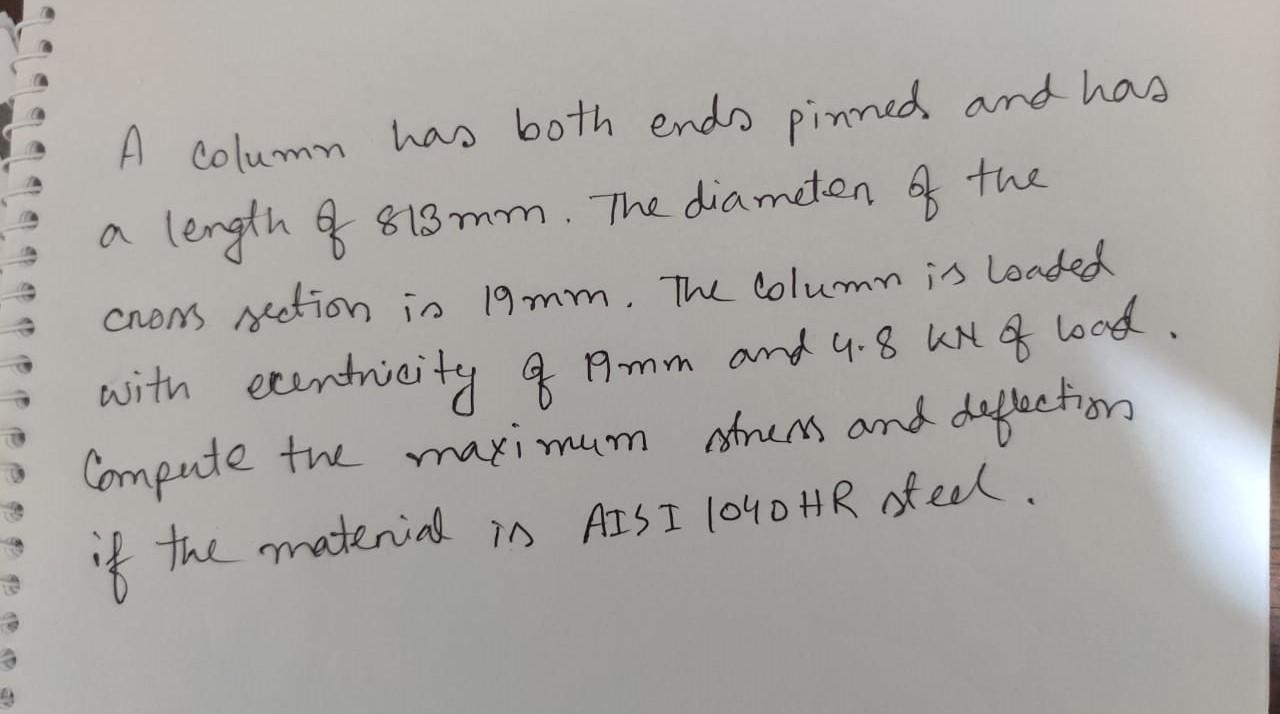 A column has both ends pinned and has
a length of 813mm. The diameter of the
cross section is 19mm. The column is loaded
with ecentricity of 19mm and 4.8 kN of load.
Compute the maximum stress and deflection
if the material is AISI 1040HR steel.